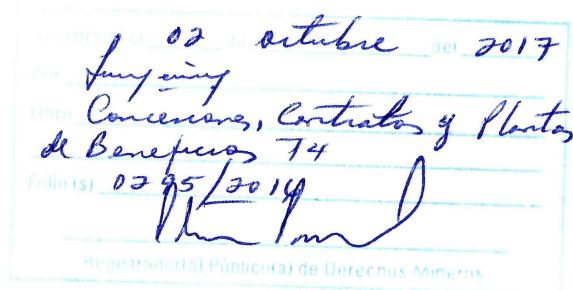 02 de octubre del 2017
Por
Libro Concesiones, Contratos y Plantas
de Beneficios T4
Folio (s) 0295/2014
Registrador(a) Público(a) de Derechos Mineros